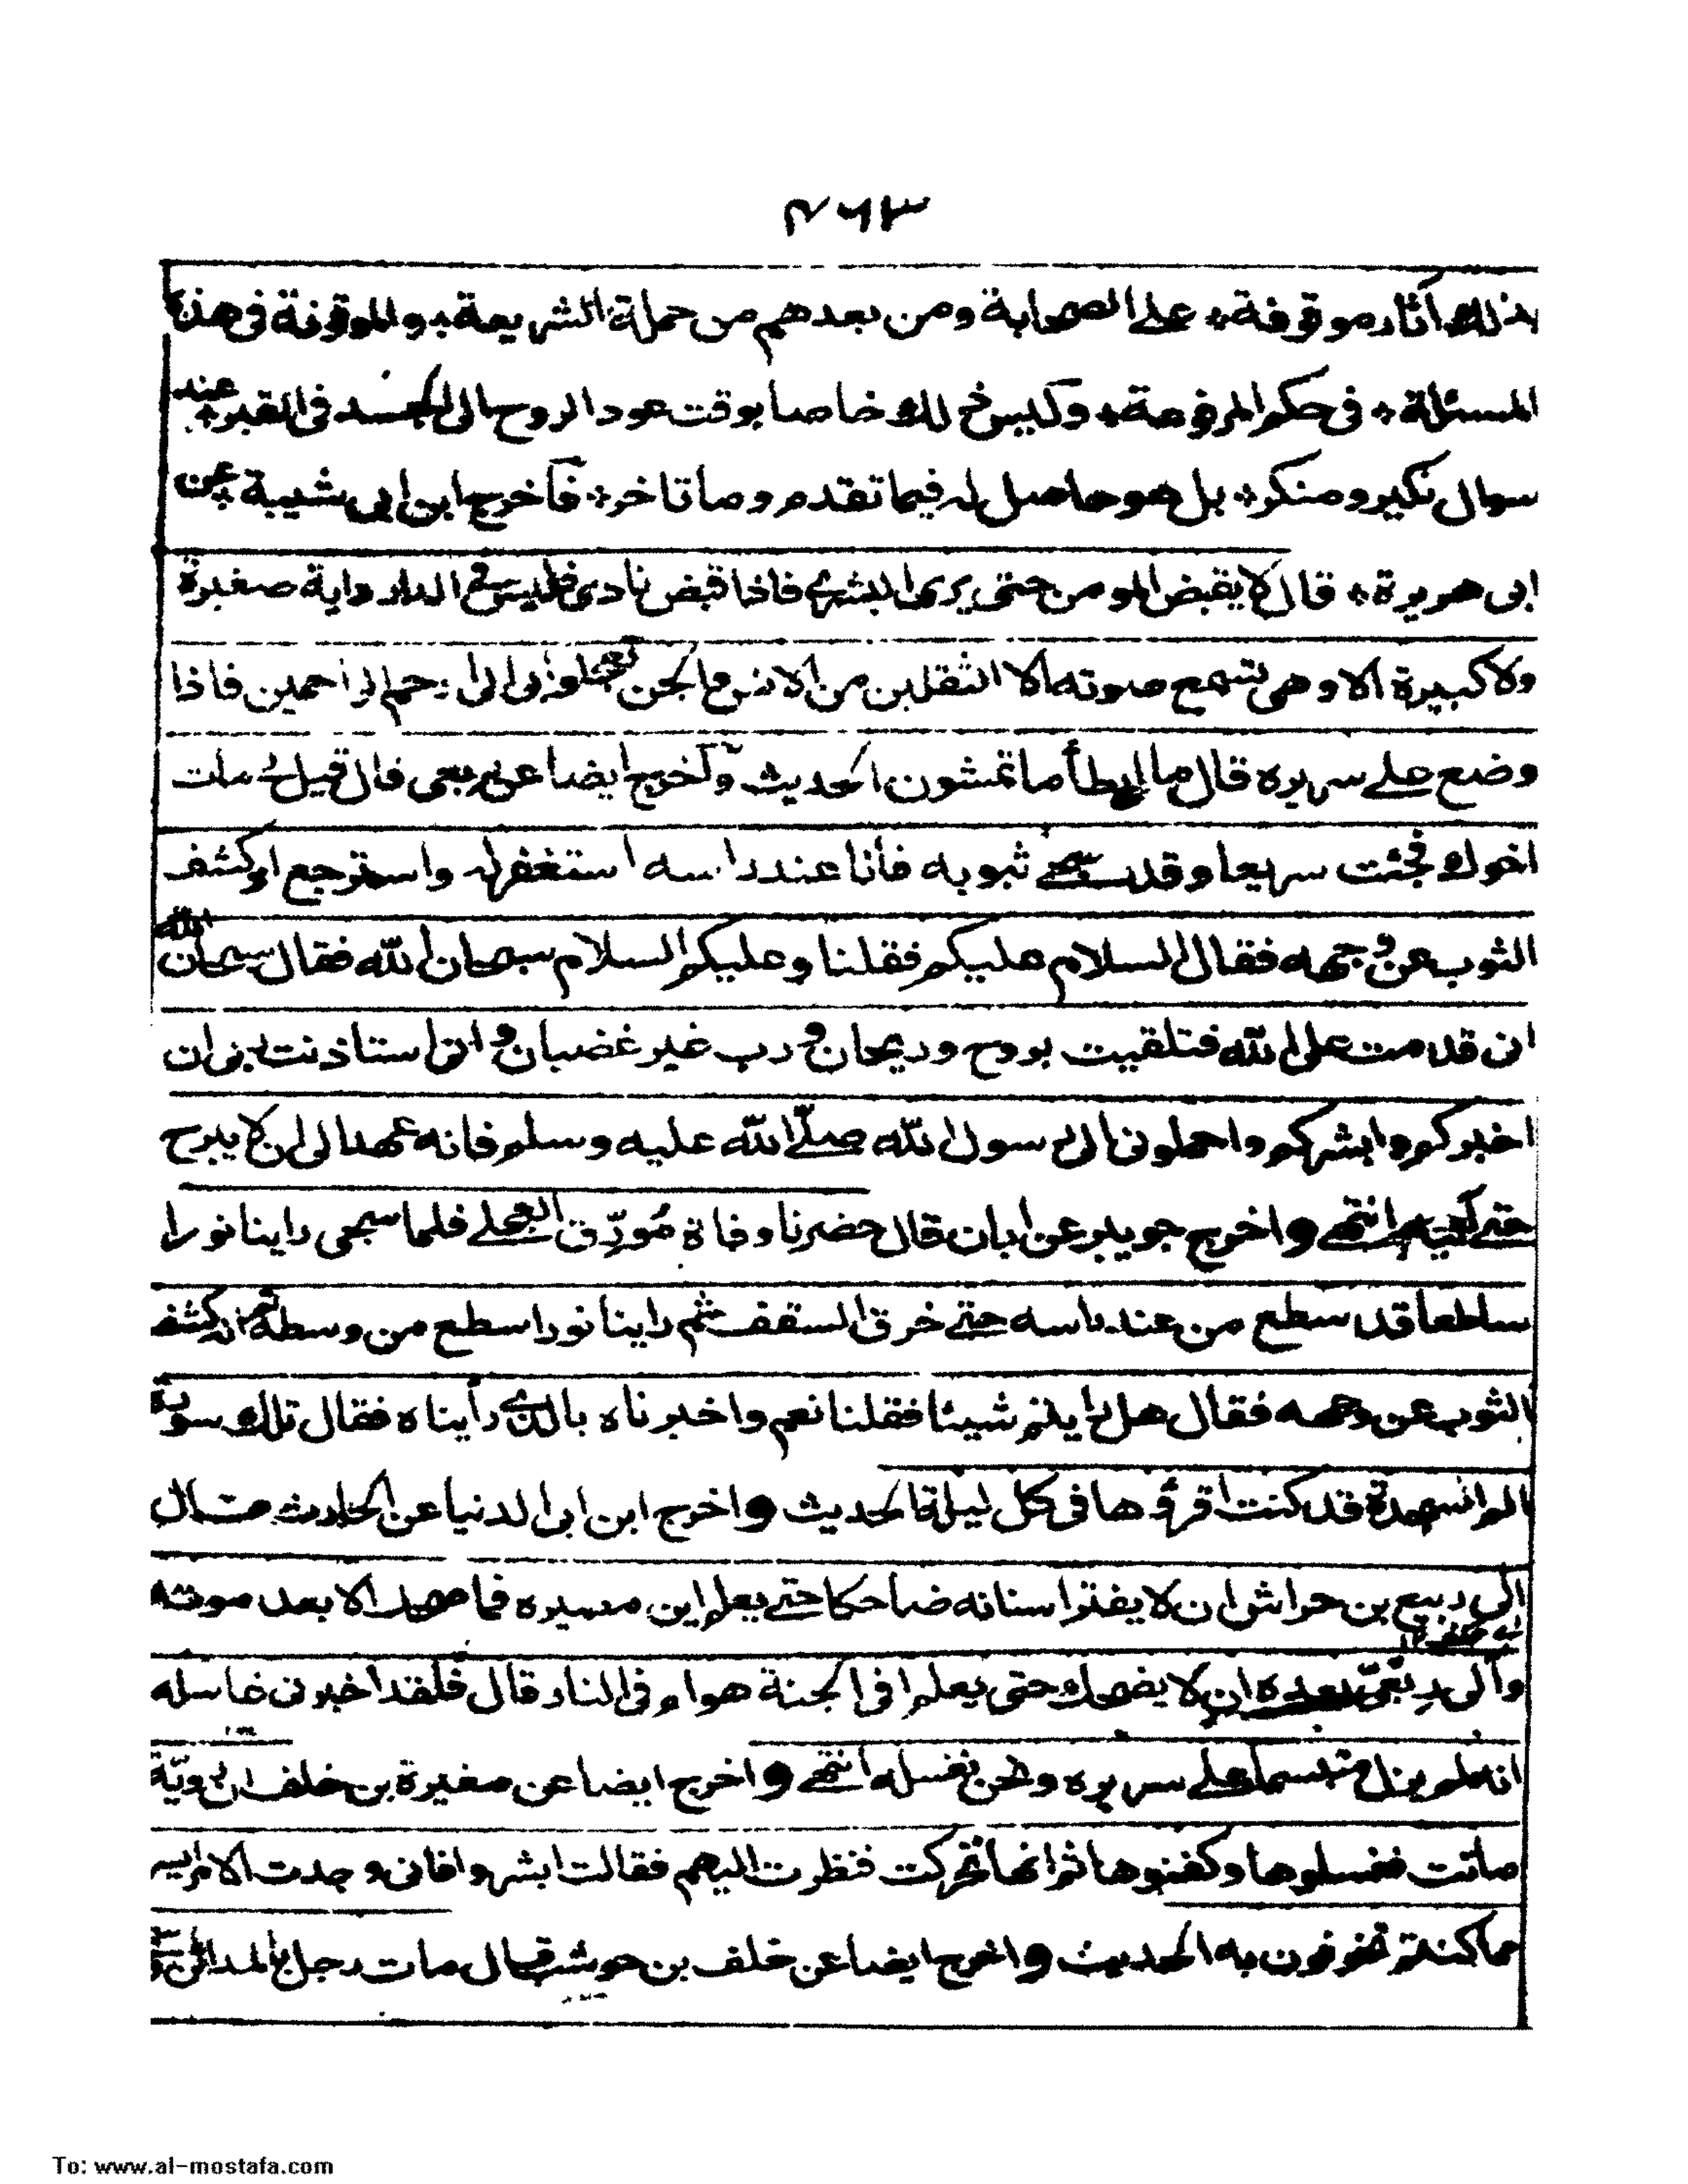 ٣٦٣
بذلك آثار موقوفة * على الصحابة ومن بعدهم من حملة الشريعة * والموقوفة في هذه
المسئلة * في حكم المرفوعة * وليس ذلك خاصا بوقت عود الروح الى الجسد في القبر * عند
سوال نكير ومنكر * بل هو حاصل له فيما تقدم وما تاخر * فأخرج ابن ابي شيبة * عن
ابى هريرة * قال لا يقبض المومن حتى يرى البشرى فاذا قبض نادى فليس في الدار دابة صغيرة
ولا كبيرة الا وهى تسمع صوته الا الثقلين من الانس والجن تعجلوا بى الى ارحم الراحمين فاذا
وضع على سريره قال ما ابطأ ما تمشون الحديث وأخرج ايضا عن ربعى قال قيل لى مات
اخوك فجئت سريعا وقد سجى ثبوبه فأنا عند راسه استغفر له واسترجع اذ كشف
الثوب عن وجهه فقال السلام عليكم فقلنا وعليكم السلام سبحان الله فقال سبحان الله
انى قدمت على الله فتلقيت بروح وريحان ورب غير غضبان وانى استاذنت ربى ان
اخبركم وابشركم واحملونى الى رسول الله صلى الله عليه وسلم فانه عهد الى ان لا يبرح
حتى آتيه انتهى واخرج جويبر عن ابان قال حضرنا وفاة مُورِّق العجلى فلما سجى راينا نورا
ساطعا قد سطع من عند راسه حتى خرق السقف ثم راينا نورا سطع من وسطه ثم انه كشف
الثوب عن وجهه فقال هل رايتم شيئا فقلنا نعم واخبرناه بالذى رأيناه فقال تلك سورة
الم السجدة قد كنت اقرؤها فى كل ليلة الحديث واخرج ابن ابى الدنيا عن الحارث قال
آلى ربيع بن حراش ان لا يفتر اسنانه ضاحكا حتى يعلم اين مصيره فما ضحك الا بعد موته
وآلى رِبْعِىّ بعده ان لا يضحك حتى يعلم افى الجنة هو ام فى النار قال فلقد اخبرنى غاسله
انه لم يزل متبسما على سريره ونحن نغسله انتهى واخرج ايضا عن مغيرة بن خلف ان رويّة
ماتت فغسلوها وكفنوها ثم انها تحركت فنظرت اليهم فقالت ابشروا فانى وجدت الامر ايسر
مما كنتم تخوفون به الحديث واخرج ايضا عن خلف بن حوشب قال مات رجل بالمدائن
To: www.al-mostafa.com